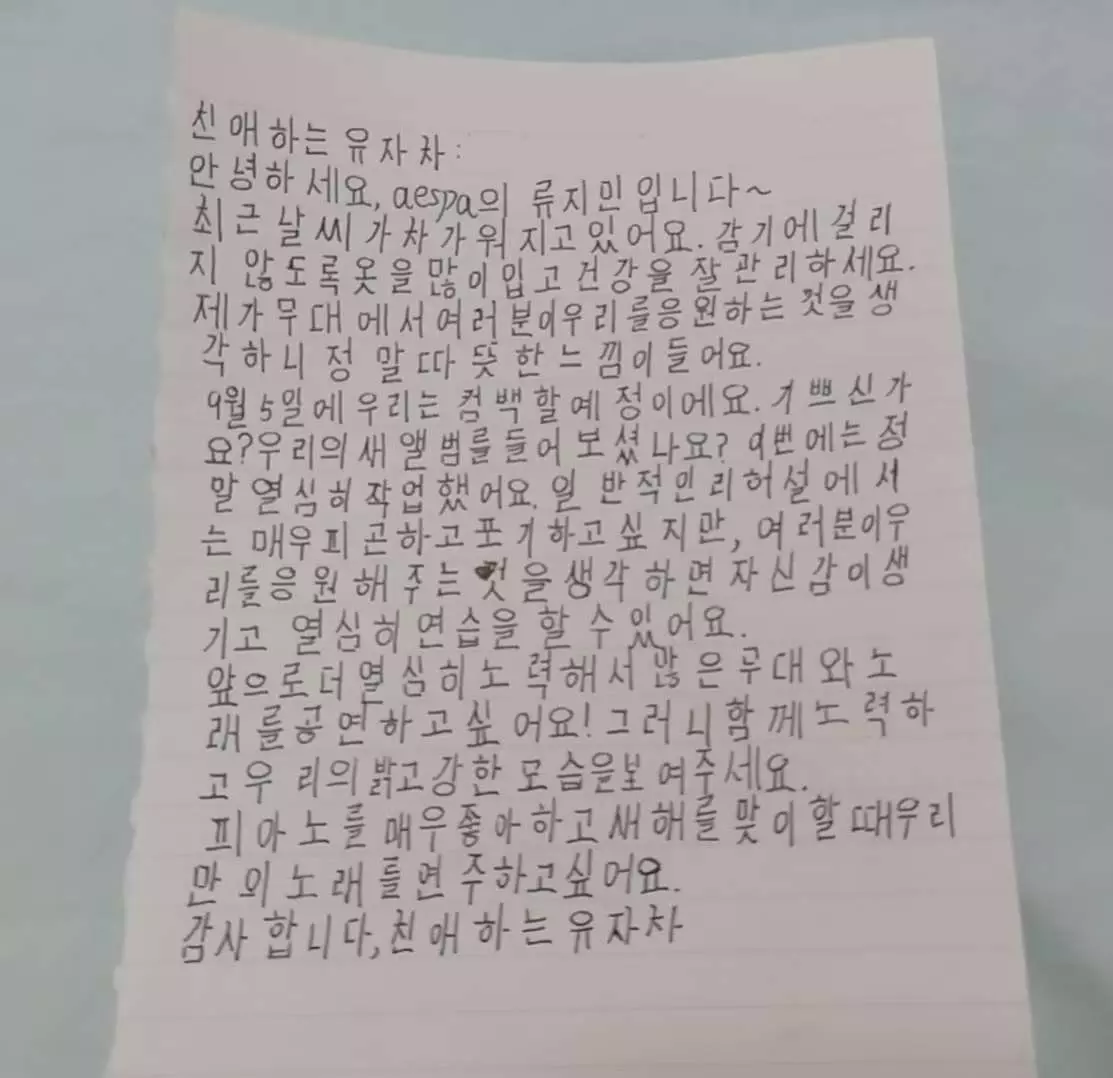 친애하는 유자차:
안녕하세요, aespa의 류지민입니다~
최근 날씨가 차가워 지고 있어요. 감기에 걸리
지 않도록 옷을 많이 입고 건강을 잘 관리하세요.
제가 무대에서 여러분이 우리를 응원하는 것을 생
각하니 정말 따뜻한 느낌이 들어요.
9월 5일에 우리는 컴백할 예정이에요. 기쁘신가
요? 우리의 새 앨범를 들어 보셨나요? 이번에는 정
말 열심히 작업했어요. 일반적인 리허설에서
는 매우 피곤하고 포기하고 싶지만, 여러분이 우
리를 응원해 주는 것을 생각하면 자신감이 생
기고 열심히 연습을 할 수 있어요.
앞으로 더 열심히 노력해서 많은 무대와 노
래를 공연하고 싶어요! 그러니 함께 노력하
고 우리의 밝고 강한 모습을 보여주세요.
피아노를 매우 좋아하고 새해를 맞이할 때 우리
만의 노래를 연주하고 싶어요.
감사합니다, 친애하는 유자차